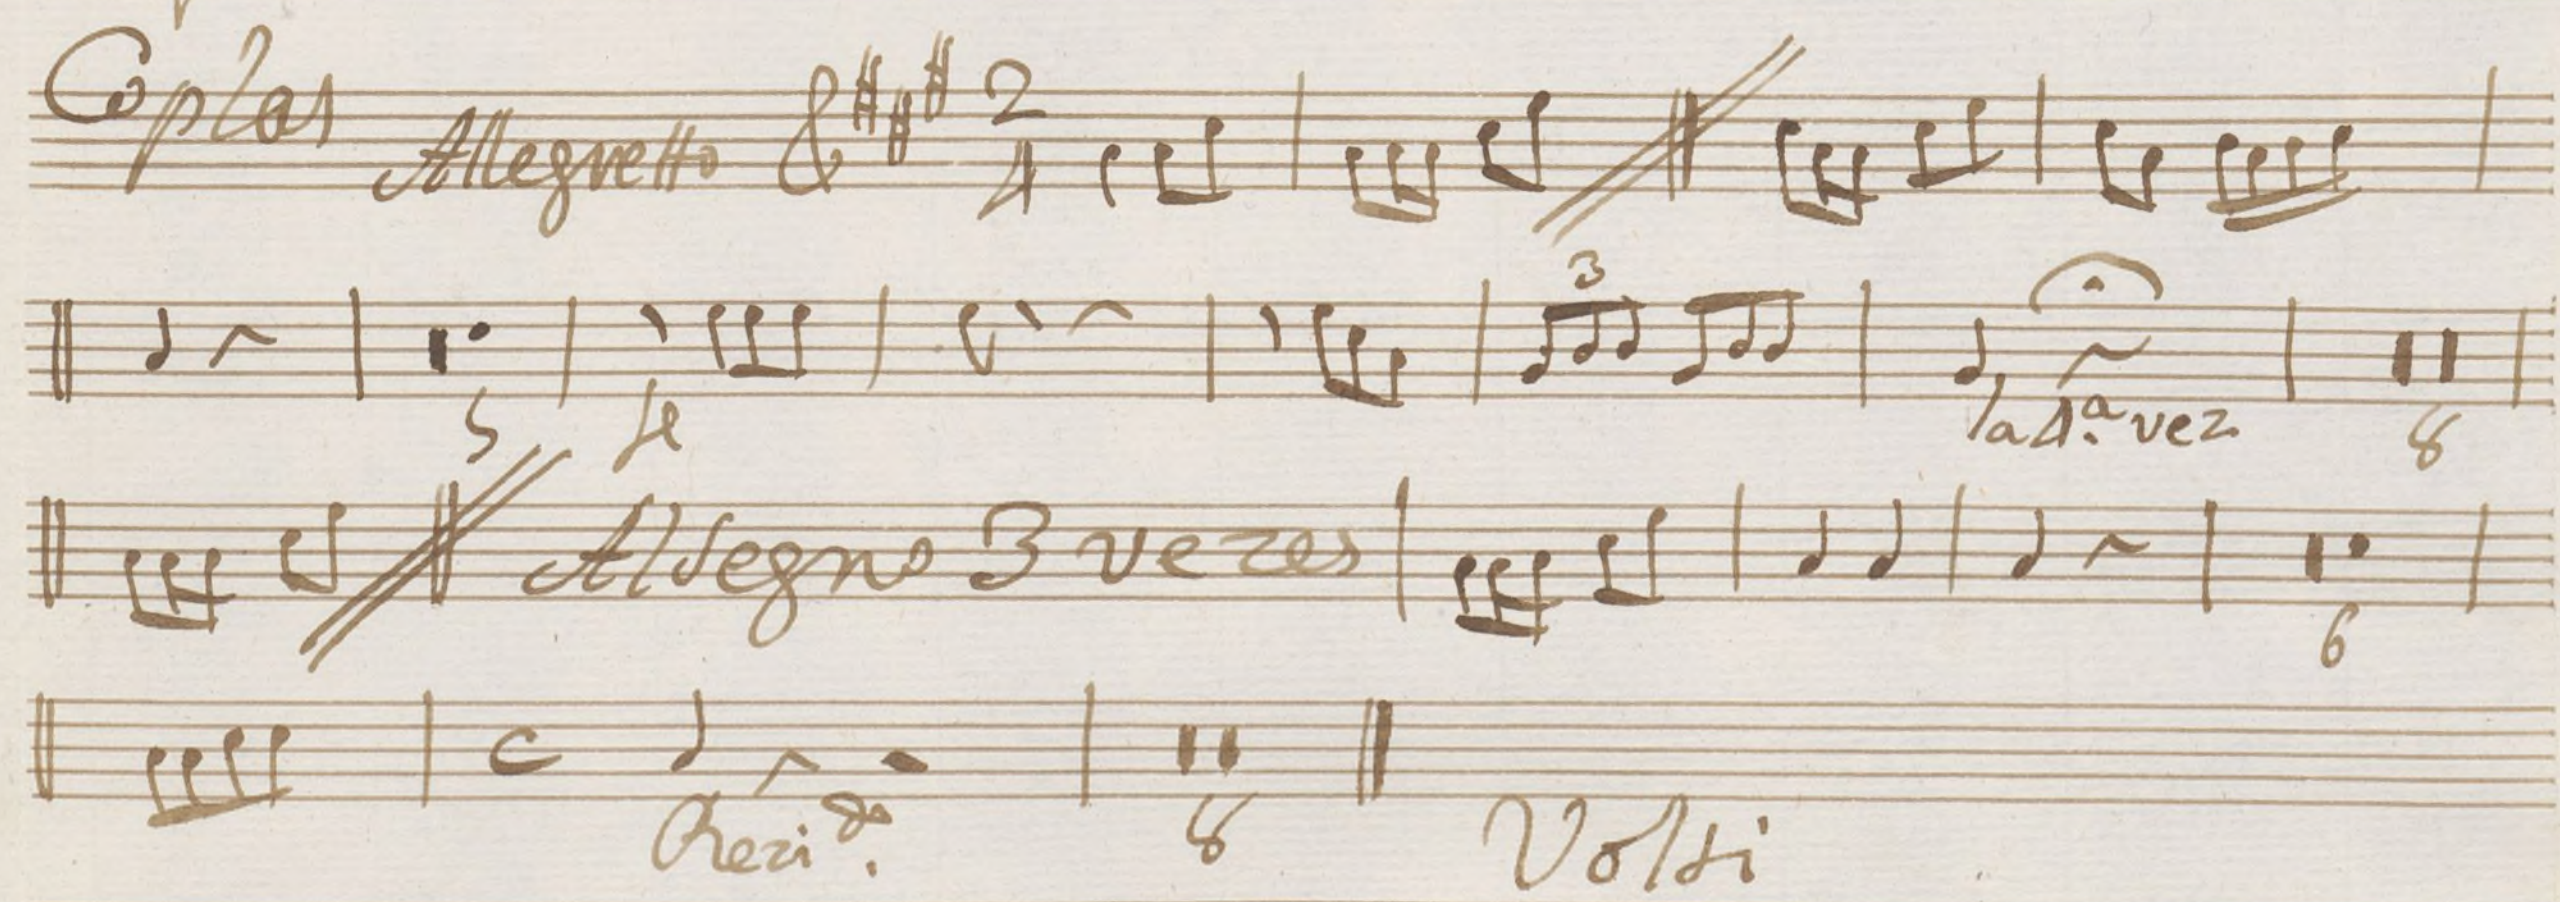 Coplas Allegretto 2 4
3
5 fe la 4.ª vez 8
Al Segno 3 vezes 6
Rezi.do 8 Volti